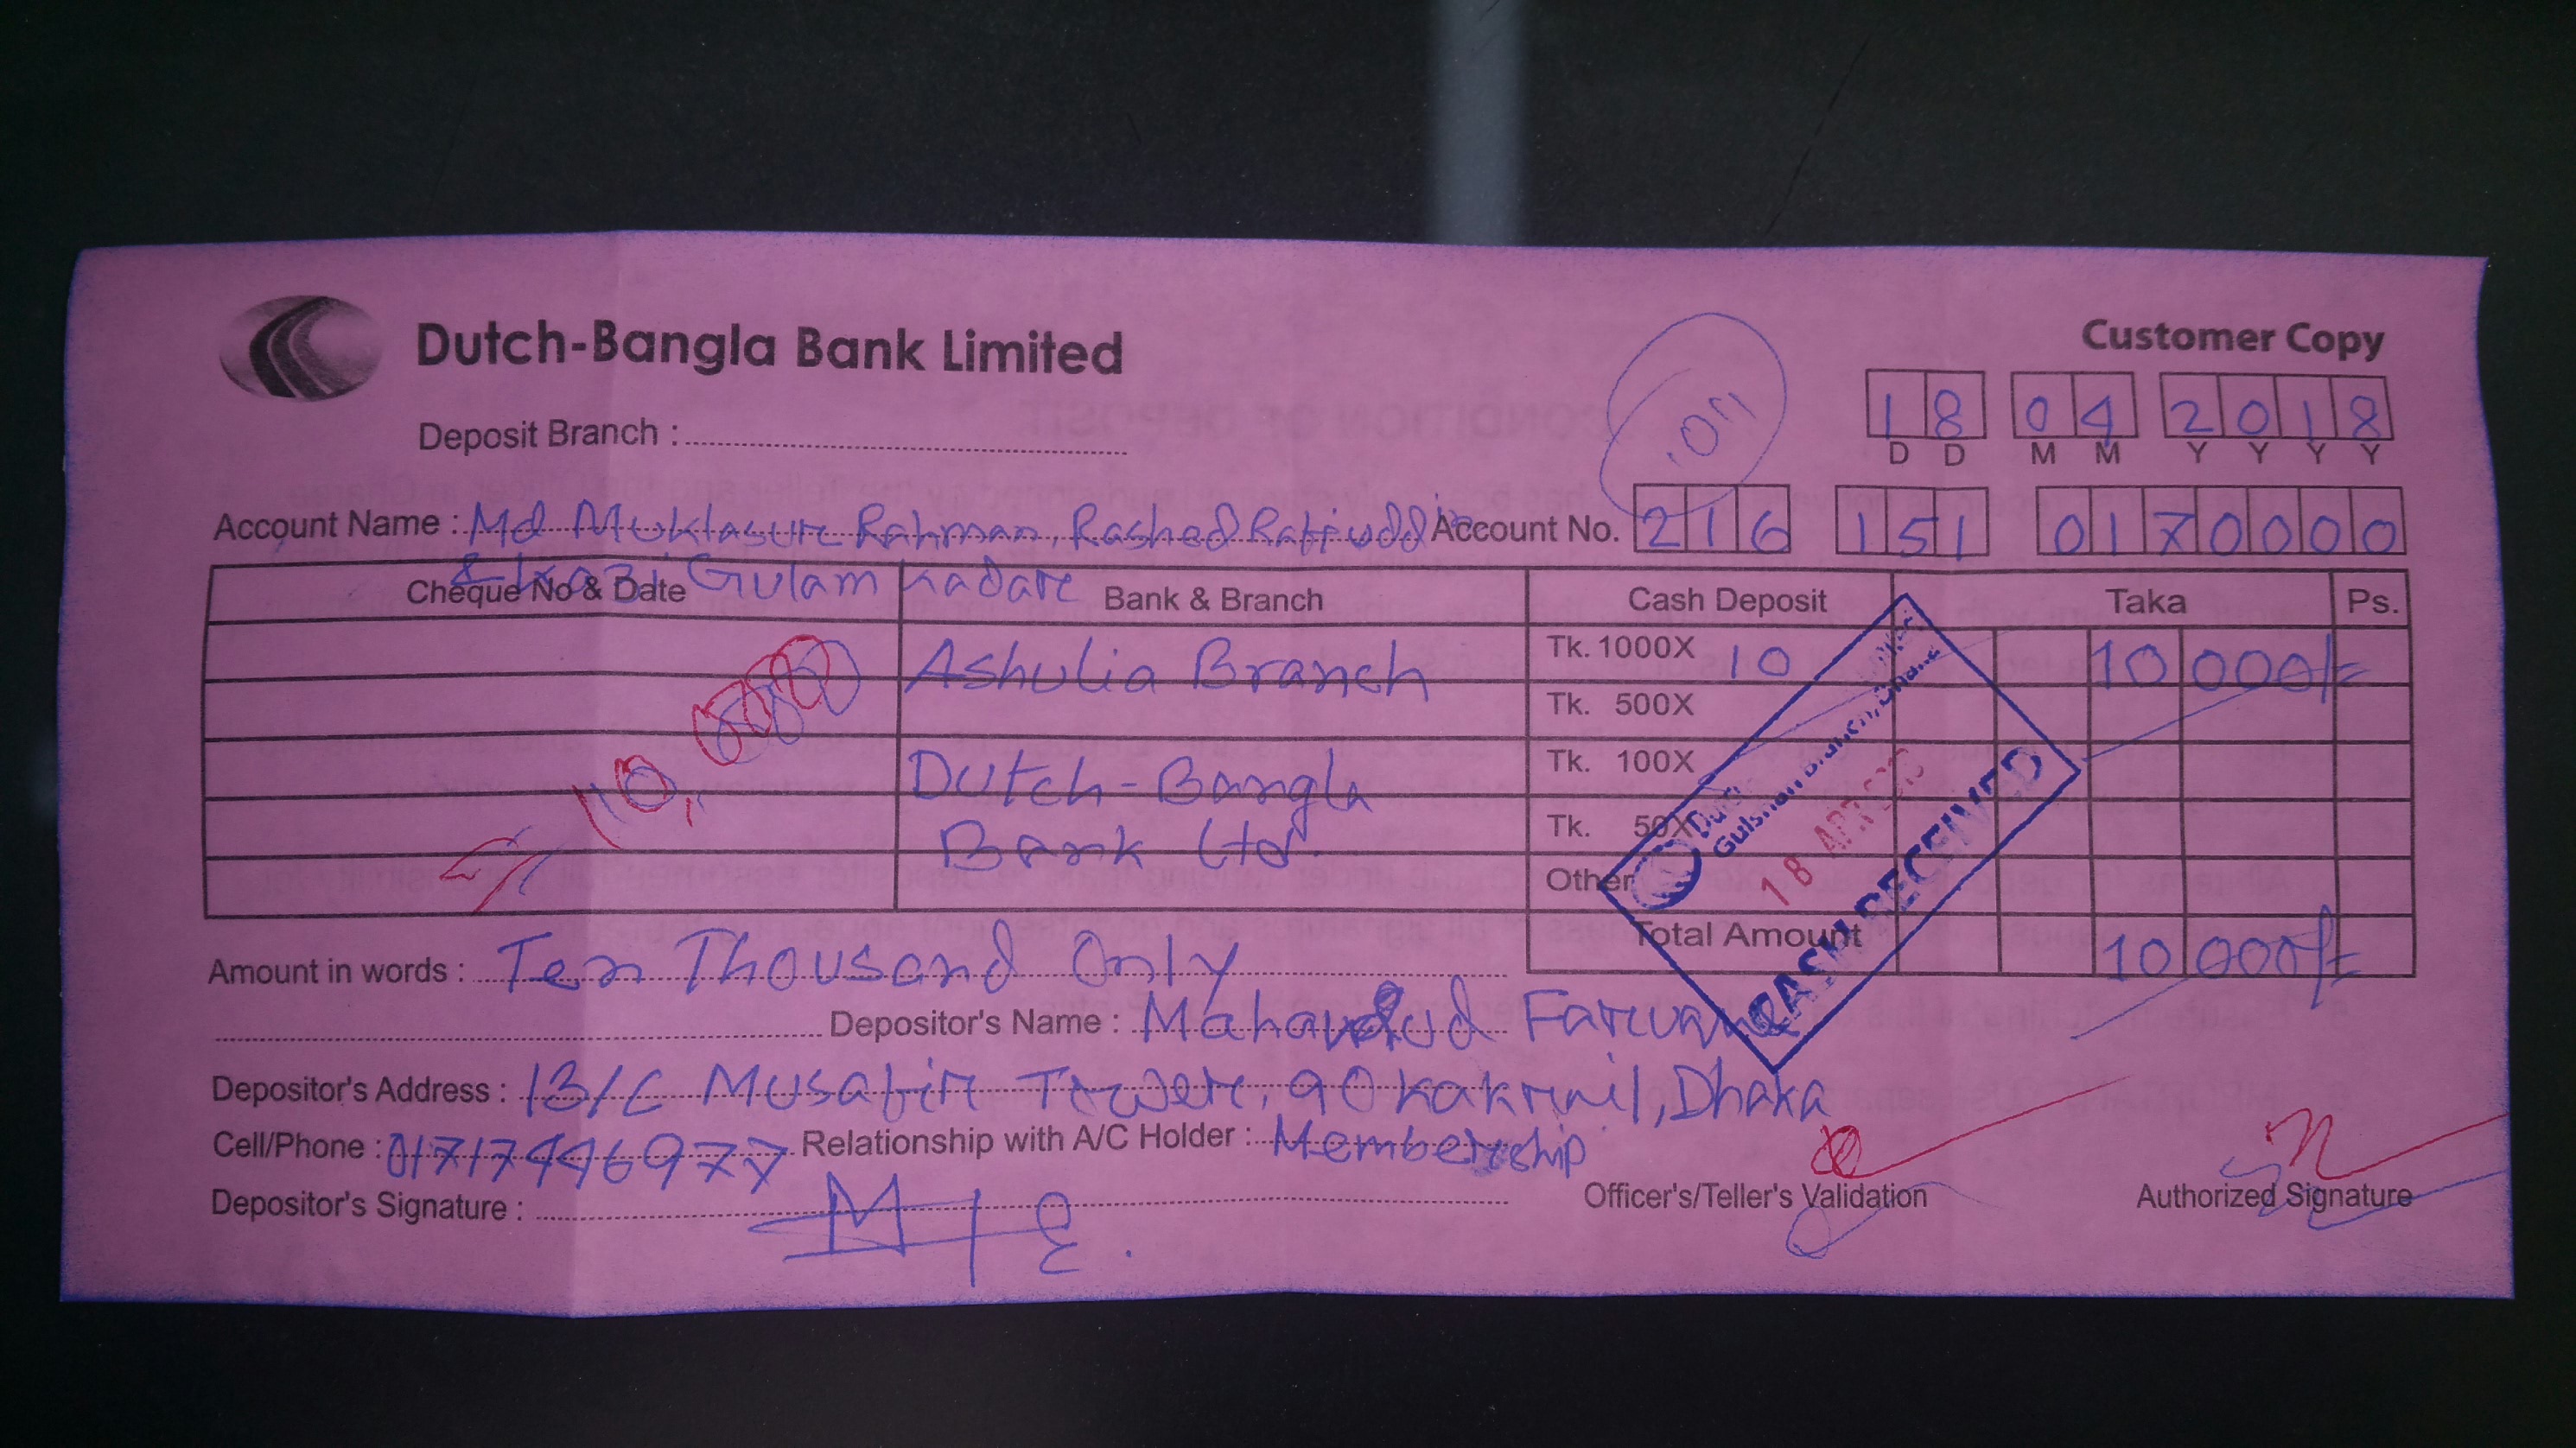 Dutch-Bangla Bank Limited
Customer Copy
18 04 2018
D D M M Y Y Y Y
Deposit Branch :
Account Name : Md Muklasur Rahman, Rashed Rafiuddin
& Kazi Gulam Kadar
Account No. 216 151 0170000
Cheque No & Date Bank & Branch Cash Deposit Taka Ps.
Ashulia Branch Tk. 1000X 10 10 000/=
Tk. 500X
Dutch-Bangla Tk. 100X
Bank Ltd. Tk. 50X
10,000
Other
Total Amount 10 000/=
Gulshan Branch, Dhaka
18 APR 2018
CASH RECEIVED
Amount in words : Ten Thousand Only
Depositor's Name :
Depositor's Address : 13/C Musafir Tower, 90 Kakrail, Dhaka
Cell/Phone : 01717446977 Relationship with A/C Holder : Membership
Depositor's Signature :
Officer's/Teller's Validation
Authorized Signature